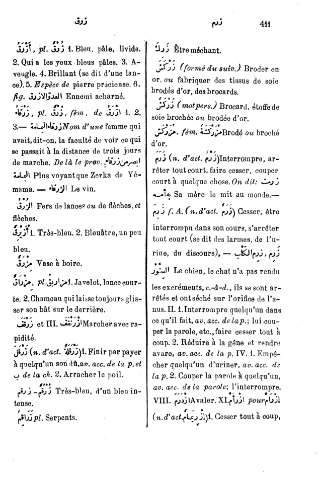 زرق
زرم
411
أَزْرَق, pl. زُرْق 1. Bleu, pâle, livide.
2. Qui a les yeux bleus pâles. 3. A-
veugle. 4. Brillant (se dit d'une lan-
ce). 5. Espèce de pierre précieuse. 6.
العدوّ الازرق fig. Ennemi acharné.
زَرْقَاء, pl. زُرْق, fém. de أَزْرَق 1. 2.
3. — زرقاء اليمامة Nom d'une femme qui
avait, dit-on, la faculté de voir ce qui
se passait à la distance de trois jours
de marche. De là le prov. أبصر من زرقاء
اليمامة Plus voyante que Zerka de Yé-
mama. — الزرقاء Le vin.
زُرْق Fers de lances ou de flèches, et
flèches.
1. Très-bleu. 2. Bleuâtre, un peu
bleu.
Vase à boire.
مِزْرَاق, pl. مزاريق 1. Javelot, lance cour-
te. 2. Chameau qui laisse toujours glis-
ser son bât sur le derrière.
et III. Marcher avec ra-
pidité.
(n. d'act. ) 1. Finir par payer
à quelqu'un son dû, av. acc. de la p. et
ب de la ch. 2. Arracher le poil.
زُرْقُم Très-bleu, d'un bleu in-
tense.
pl. Serpents.
Être méchant.
زَرْكَشَ (formé du suiv.) Broder en
or. ou fabriquer des tissus de soie
brodés d'or, des brocards.
زَرْكَش (mot pers.) Brocard, étoffe de
soie brochée ou brodée d'or.
مُزَرْكَش, fém. مُزَرْكَشَة Brodé ou broché
d'or.
زَرَمَ (n. d'act. زَرْم) Interrompre, ar-
rêter tout court, faire cesser, couper
court à quelque chose. On dit: زرمت
به أمه Sa mère le mit au monde.—
زَرِمَ f. A. (n. d'act. زَرَم) Cesser, être
interrompu dans son cours, s'arrêter
tout court (se dit des larmes, de l'u-
rine, de discours). — زرم الكلب،
السنور Le chien, le chat n'a pas rendu
les excréments, c.-à-d., ils se sont ar-
rêtés et ont séché sur l'orifice de l'a-
nus. II. 1. Interrompre quelqu'un dans
ce qu'il fait, av. acc. de la p.; lui cou-
per la parole, etc., faire cesser tout à
coup. 2. Réduire à la gêne et rendre
avare, av. acc. de la p. IV. 1. Empê-
cher quelqu'un d'uriner, av. acc. de la
p. 2. Couper la parole à quelqu'un,
av. acc. de la parole; l'interrompre.
VIII. ازدرم Avaler. XI. pour
(n. d'act. ) 1. Cesser tout à coup,